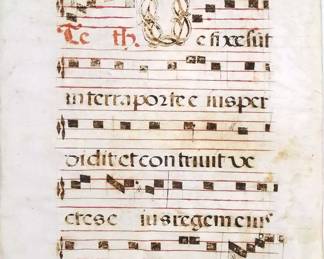 Te th. D e fixe sūt
in terra porte e ius per
didit et contriuit ve
ctes e ius regem eius